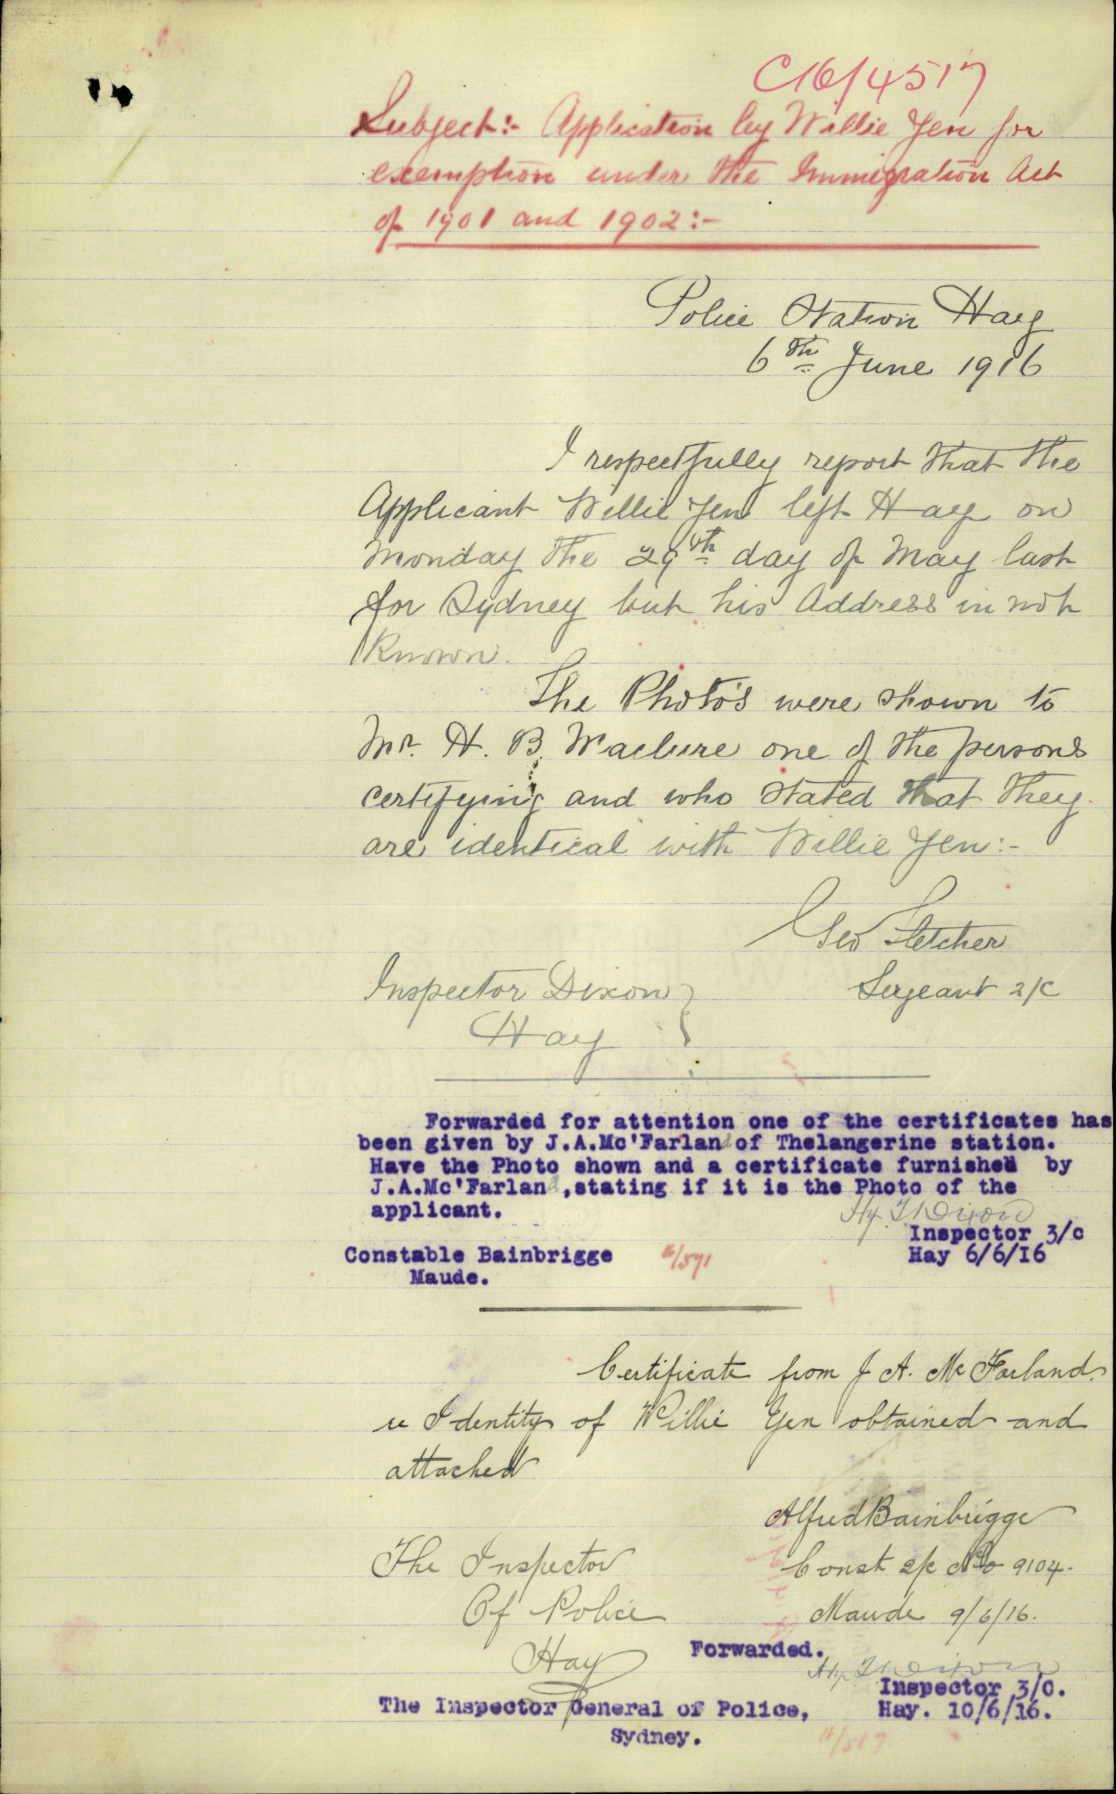 C16/4517
Subject:- Application by Willie Yen for
exemption under the Immigration Act
of 1901 and 1902:-
Police Station Hay
6th June 1916
I respectfully report that the
Applicant Willie Yen left Hay on
Monday the 29th day of May last
for Sydney but his Address in not
Known.
The Photo's were shown to
Mr. H. B. Maclure one of the persons
certifying and who stated that they
are identical with Willie Yen:-
Geo Fletcher
Sergeant 2/C
Inspector Dixon
Hay
Forwarded for attention one of the certificates has
been given by J.A.Mc'Farland of Thelangerine station.
Have the Photo shown and a certificate furnished by
J.A.Mc'Farland,stating if it is the Photo of the
applicant.
Dixon
Inspector 3/c
Constable Bainbrigge 16/571 Hay 6/6/I6
Maude.
Certificate from J A. McFarland.
re Identity of Willie Yen obtained and
attached
Alfred Bainbrigge
The Inspector Const 2/c No 9104.
Of Police Maude 9/6/16.
Hay Forwarded.
Dixon
Inspector 3/C.
The Inspector General of Police, Hay. 10/6/16.
Sydney.